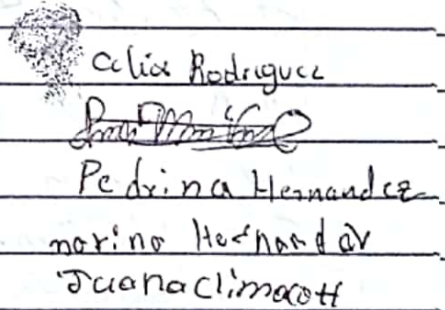 Celia Rodriguez
Pedrina Hernandez
marino Hernandar
Juana climacott